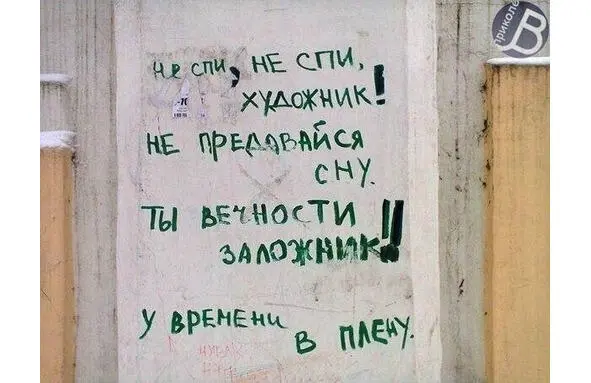 не спи, НЕ СПИ,
ХУДОЖНИК!
НЕ ПРЕДОВАЙСЯ
СНУ.
ТЫ ВЕЧНОСТИ
ЗАЛОЖНИК!!
У ВРЕМЕНИ
В ПЛЕНУ.
ПРИКОЛЕ
В